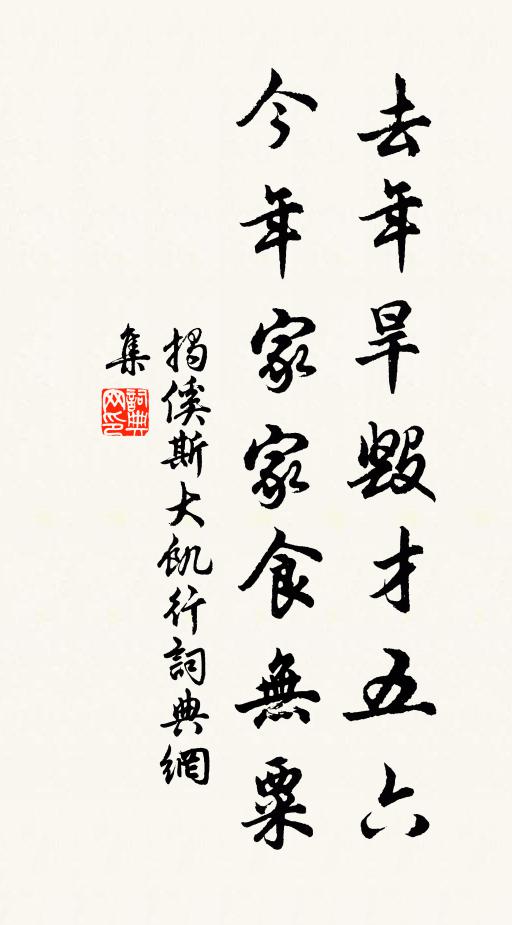 去年旱毀才五六
今年家家食無粟
揭傒斯大飢行詞典網
集
詞典
网印